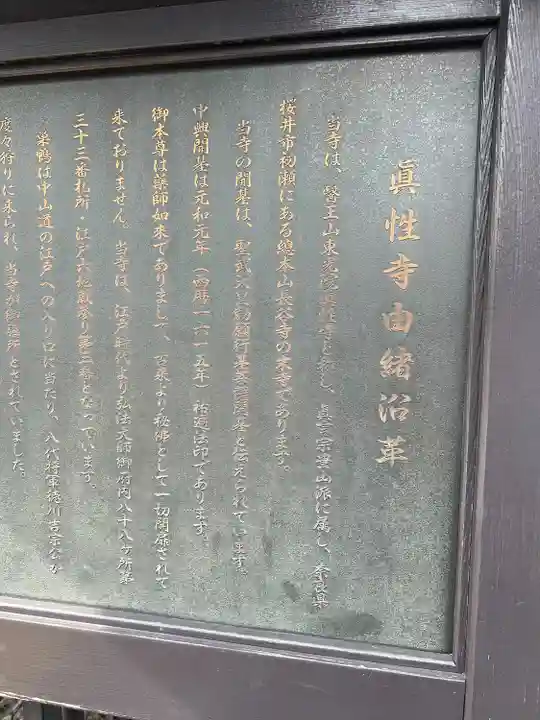 眞性寺由緒沿革
当寺は、醫王山東光院眞性寺と称し、真言宗豊山派に属し、奈良県
桜井市初瀬にある總本山長谷寺の末寺であります。
当寺の開基は、聖武天皇勅願行基菩薩開基と伝えられています。
中興開基は元和元年(西暦一六一五年)祐遍法印であります。
御本尊は薬師如来でありまして、古来より秘佛として一切開扉されて
来ておりません。当寺は、江戸時代より弘法大師御府内八十八ヶ所第
三十三番札所・江戸六地蔵参り第三番となっています。
巣鴨は中山道の江戸への入り口に当たり、八代将軍徳川吉宗公が
度々狩りに来られ、当寺が御膳所とされていました。